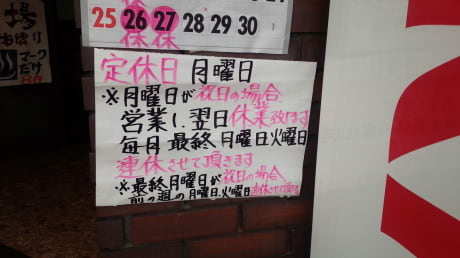 場
お隣り
マーク
だけ
25 26 27 28 29 30
休 休
定休日 月曜日
※月曜日が祝日の場合、
営業し、翌日休業致します
毎月最終月曜日火曜日
連休させて頂きます
※最終月曜日が祝日の場合、
前の週の月曜日、火曜日連休させて頂きます